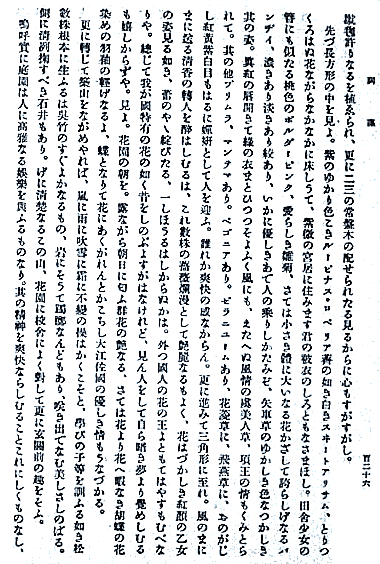 詞藻
百二十六
數種許りなるを植ゑられ、更に二三の常盤木の配せられたる見るからに心もすがすがし。
先づ長方形の中を見よ。紫のゆかり色こきルーピナス、ロベリア、雪の如き白きスヰートアリサム、とりつ
くろはぬ花ながらなかなかに床しうて、
簪にも似たる桃色のボルダーピンク、愛らしき雛菊、さては小さき體に大いなる花かざして誇らしげなるパ
ンヂイ、濃きあり淡きあり絞あり、いかに優しきあて人の乘りしかたみぞ。矢車草のゆかしき色なつかしき
其の姿。眞紅の唇開きて綠の衣まとひつつそよふく風にも、えたへぬ風情の虞美人草、項王の情もくみとら
れて。其の他プリムラ、マンテマあり。ベゴニアあり。ゼラニユームあり、花菱草に、飛燕草に、おのがじ
し紅黃紫白目もはるに嬋妍として人を迎ふ。誰れか爽快の感なからん。更に進みて三角形に至れ。風のまに
まに送る清香の轉人を醉はしむるは、これ數株の薔薇爛漫として艷麗なるもよく、花はづかしき紅顏の乙女
の姿見る如き、蕾のやゝ綻びたる、一しほうるはしからぬかは。外つ國人の花の王よともてはやすもむべな
りや。總じて我が國特有の花の如く昔をしのぶよすがはなけれど、見ん人をして自ら暗き夢より覺めしむる
も嬉しからずや。見よ。花園の朝を。露ながら朝日に匂ふ群花の艷なる、さては花より花へ暇なき胡蝶の花
染めの羽袖の輕げなるよ、蝶となりて花にあくがれんとかこちし大江佐國の優しき情もうなづかる。
更に轉じて築山をながめやれば、嵐に雨に吹雪に霜に不變の操はかくことと、學びの子等を訓ふる如き松
數株根本に生ふるは吳竹のすぐよかなるもの、岩にそうて躑躅なんどもあり、咲き出でなむ美しさしのばる。
側に清冽掬すべき石井もあり。げに清楚なるこの山、花園に校舍によく對して更に玄關前の趣をそふ。
嗚呼實に庭園は人に高雅なる娛樂を與ふるものなり。其の精神を爽快ならしむることこれにしくものなし、